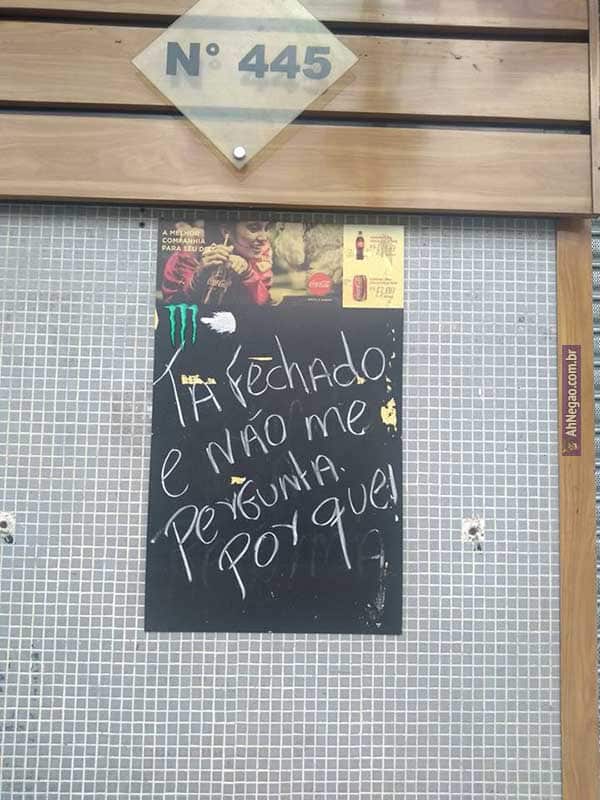 N° 445
A MELHOR
COMPANHIA
PARA SEU
Coca-Cola
TÁ FECHADO
E NÃO ME
PERGUNTA.
POR QUE!
AhNegao.com.br